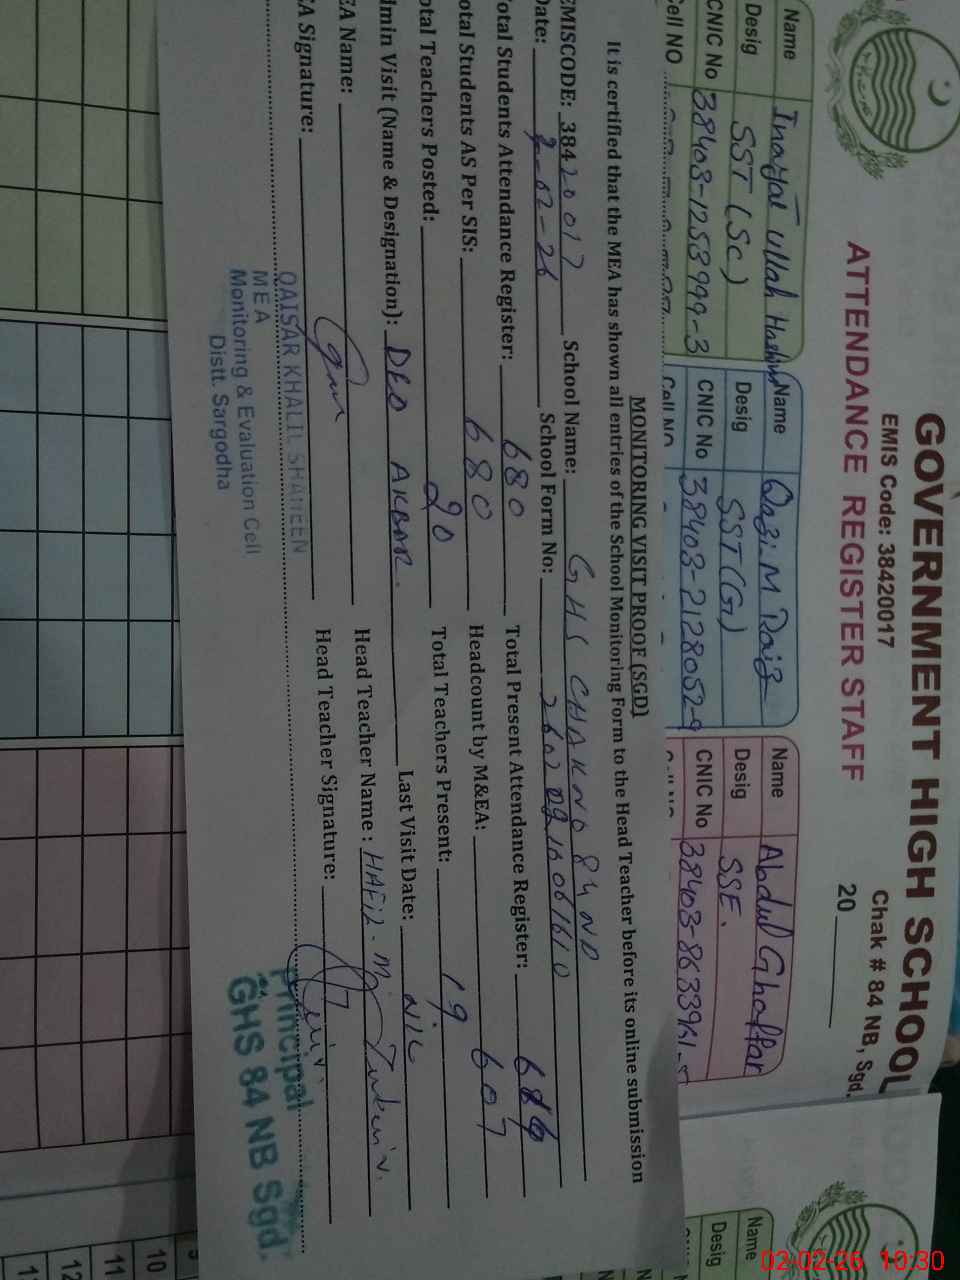 GOVERNMENT HIGH SCHOOL
EMIS Code: 38420017 Chak # 84 NB, Sgd.
ATTENDANCE REGISTER STAFF 20
Name Inayat ullah Hashmi
Desig SST (Sc)
CNIC No 38403-1253999-3
Cell NO
Name Qazi M Raiz
Desig SST (G)
CNIC No 38403-2128052-9
Cell NO
Name Abdul Ghaffar
Desig SSE.
CNIC No 38403-8633961-5
Name
Desig
MONITORING VISIT PROOF (SGD)
It is certified that the MEA has shown all entries of the School Monitoring Form to the Head Teacher before its online submission
EMISCODE: 38420017 School Name: GHS CHAK NO 84 NB
Date: 2-02-26 School Form No:
Total Students Attendance Register: 680 Total Present Attendance Register:
Total Students AS Per SIS: 680 Headcount by M&EA: 607
Total Teachers Posted: 20 Total Teachers Present: 19
Admin Visit (Name & Designation): DEO AKBAR. Last Visit Date: NIL
EA Name: Head Teacher Name : HAFIZ. M.
EA Signature: Head Teacher Signature:
QAISAR KHALIL SHAHEEN
MEA
Monitoring & Evaluation Cell
Distt. Sargodha
Principal
GHS 84 NB Sgd.
10
11
12
02-02-26 10:30